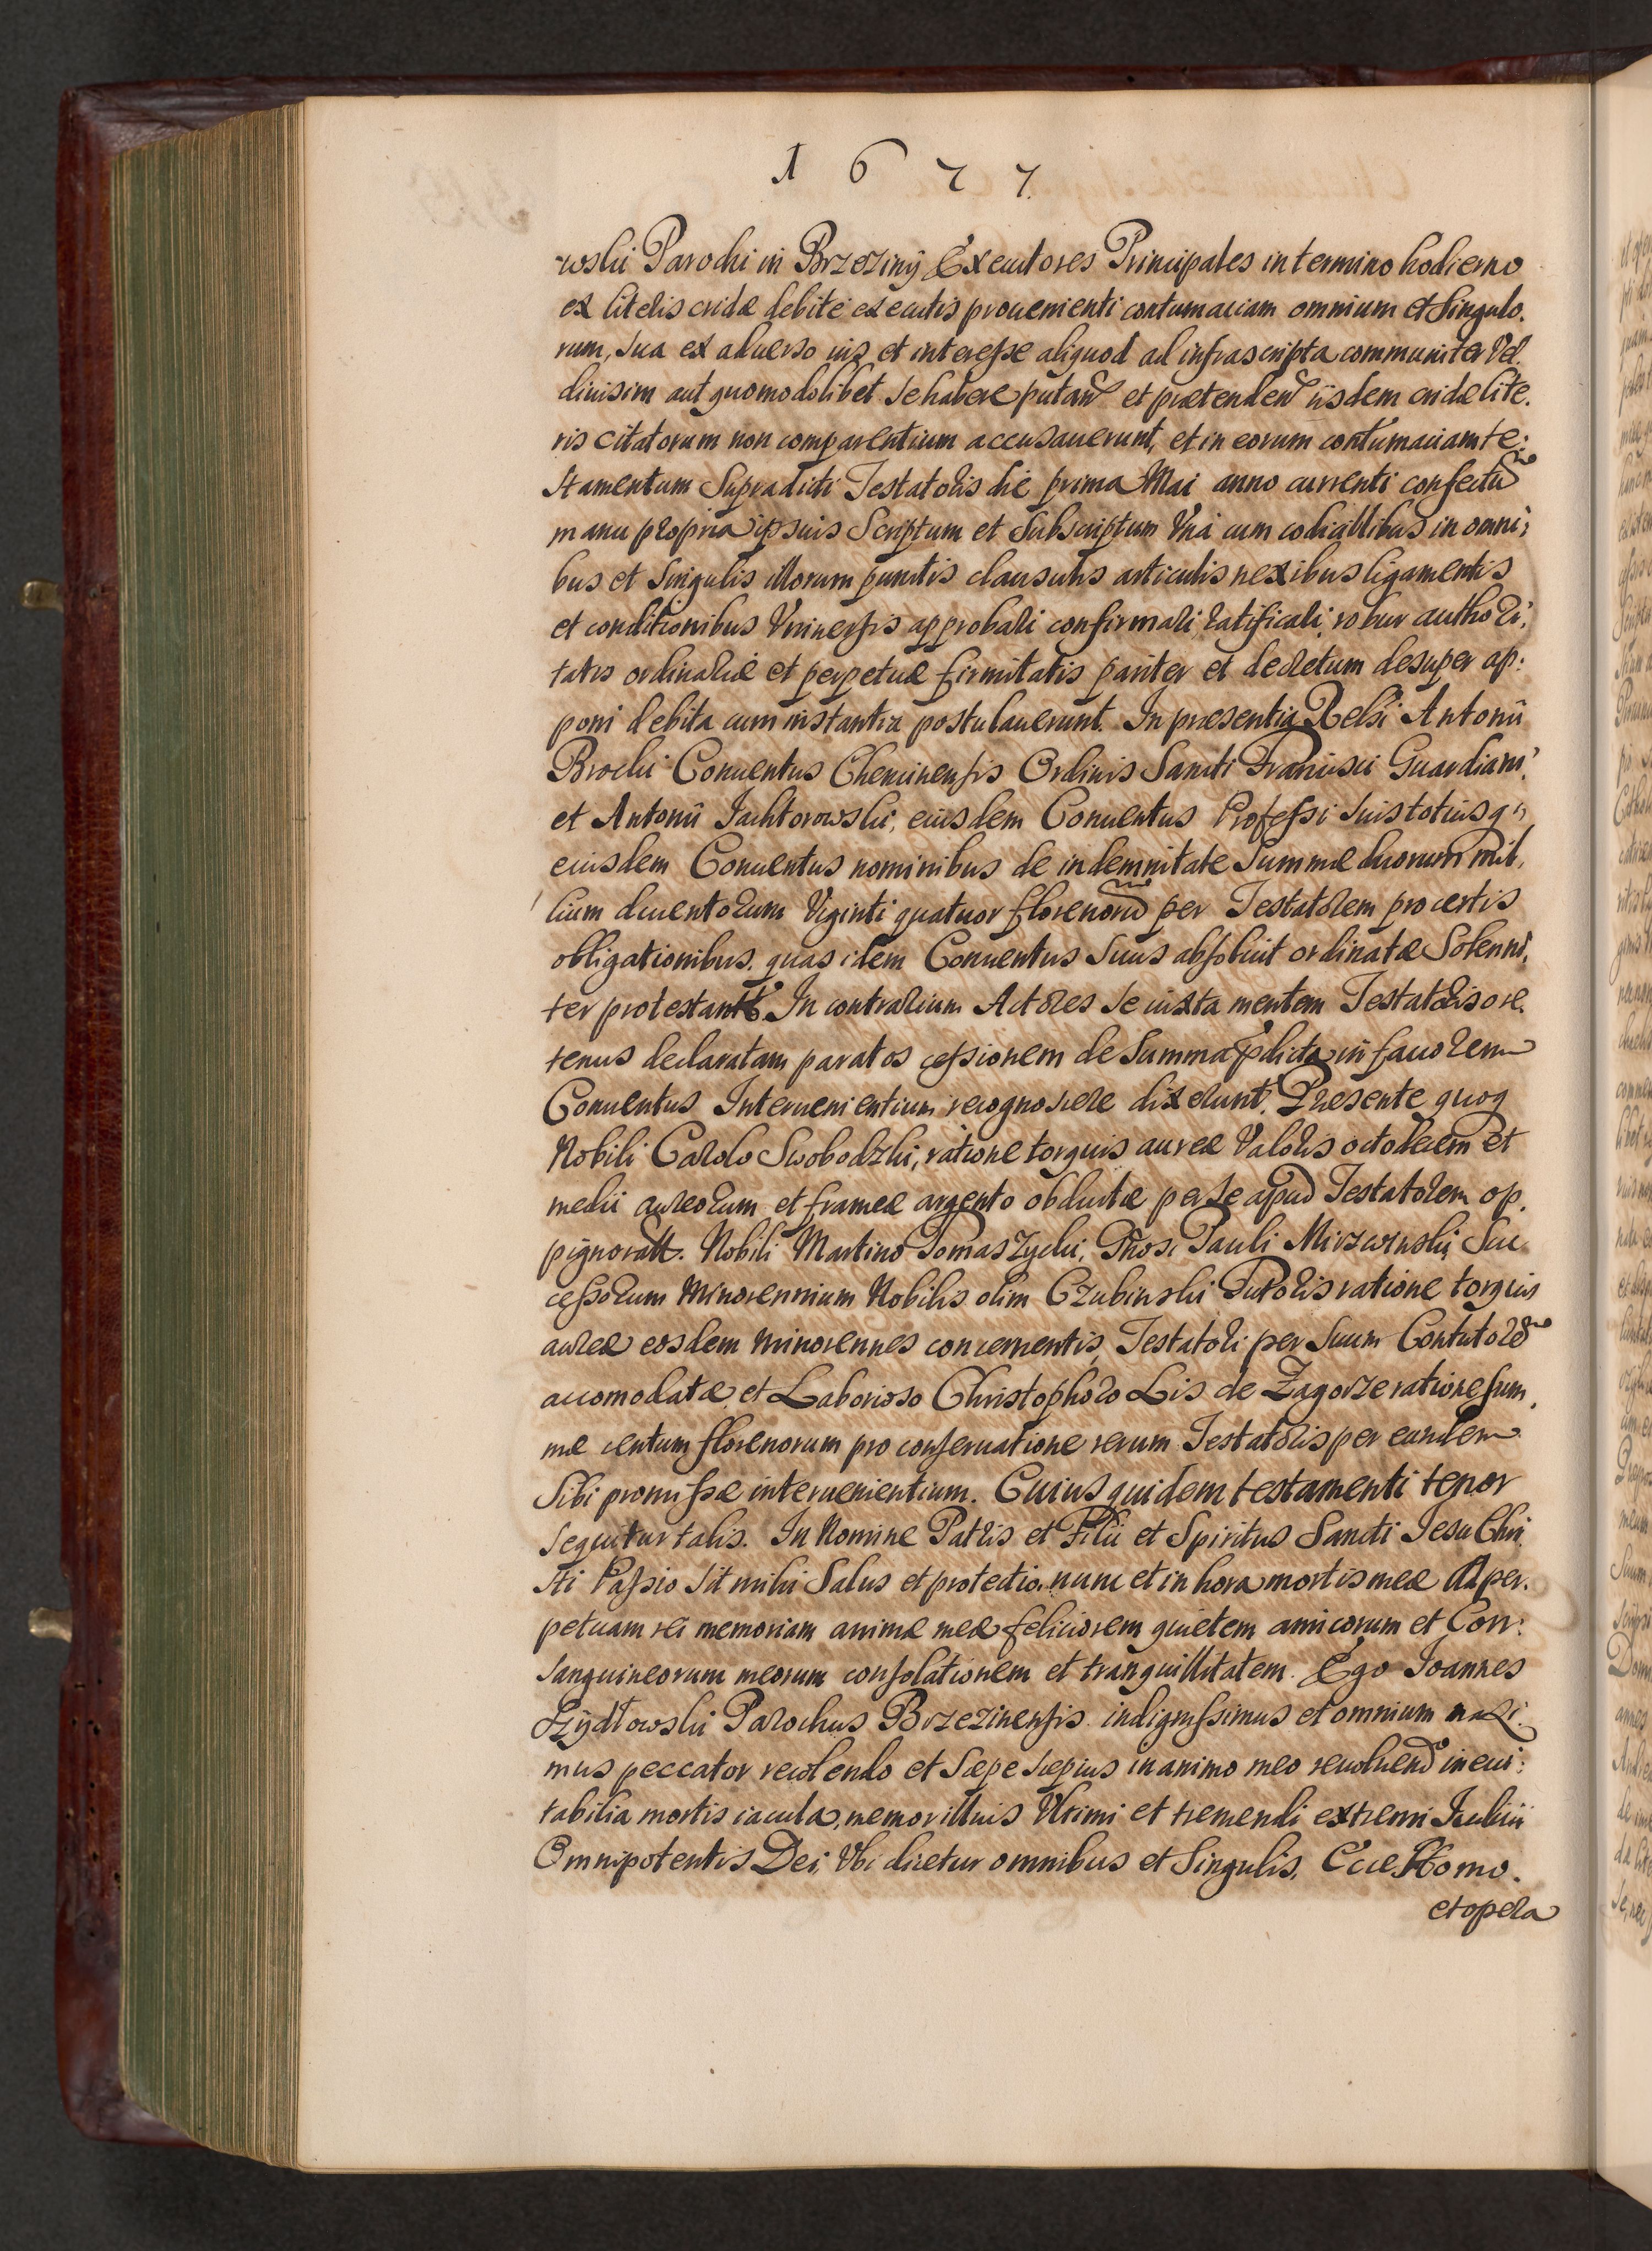 1677.
wski Parochi in Brzeziny Executores Principales in termino hodierno
ex literis cridæ debite executis prouenienti contumaciam omnium et Singulo.
rum, sua ex aduerso ius et interesse aliquod ad infrascripta communiter Vel
diuisim aut quomodolibet se habere putan̄ et prætenden̄ iisdem cridæ lite.
ris citatorum non comparentium accusauerunt, et in eorum contumaciam te:
stamentum Supradicti Testatoris die prima Mai anno currenti confectū
manu propria ipsius Scriptum et Subscriptum Vna cum codicillibus in omni:
bus et Singulis illorum punctis clausulis articulis nexibus ligamentis
et conditionibus Vniuersis approbari confirmari ratificari, robur authori:
tatis ordinariæ et perpetuæ firmitatis pariter et decretum desuper ap:
poni debita cum instantia postulauerunt. In præsentia Relsi Antonii
Brocki Conuentus Chencinensis Ordinis Sancti Francisci Guardiani,
et Antonii Jachtorowski, eiusdem Conuentus Professi suis totiusq;
eiusdem Conuentus nominibus de indemnitate Summæ duorum mil,
lium ducentorum Viginti quatuor florenorū per Testatorem pro certis
obligationibus, quas idem Conuentus Suus absoluit ordinatæ Solenni,
ter protestantt. In contrarium Actores se iuxta mentem Testatoris ore
tenus declaratam paratos cessionem de Summa p̄dicta in fauorem
Conuentus Interuenientium recognoscere dixerunt. Præsente quoq
Nobili Carolo Swobodzki, ratione torquis aureæ Valoris octodecem et
medii aureorum et frameæ argento obductæ per se apud Testatorem op.
pignoratt. Nobili Martino Tomaszycki, Gnosi Pauli Mirzwinski Suc
cessorum Minorennium Nobilis olim Czubinski Tutoris ratione torquis
aureæ eosdem minorennes concernentis, Testatori per Suum Contutorē
accomodatæ, et Laborioso Christophoro Lis de Zagorze ratione sum,
mæ centum florenorum pro conseruatione rerum Testatoris per eundem
Sibi promissæ interuenientium. Cuius quidem testamenti tenor
sequitur talis. In Nomine Patris et Filii et Spiritus Sancti Jesu Chri
sti Passio sit mihi Salus et protectio, nunc et in hora mortis meæ Ad per.
petuam rei memoriam animæ meæ feliciorem quietem amicorum et Con:
sanguineorum meorum consolationem et tranquillitatem. Ego Joannes
Szÿdłowski Parochus Brzezinensis indignissimus et omnium maxi.
mus peccator recolendo et Sæpe sæpius in animo meo reuoluen̄d ineui:
tabilia mortis iacula, memor illius Vltimi et tremendi extremi Judicii
Omnipotentis Dei, Vbi dicetur omnibus et Singulis, Ecce Homo.
et opera